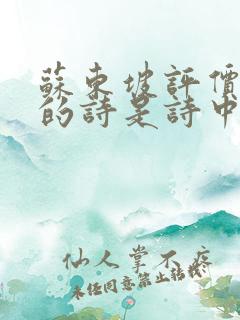 蘇東坡評價
的詩是詩中
仙人掌不疼
未任同意禁止轉載